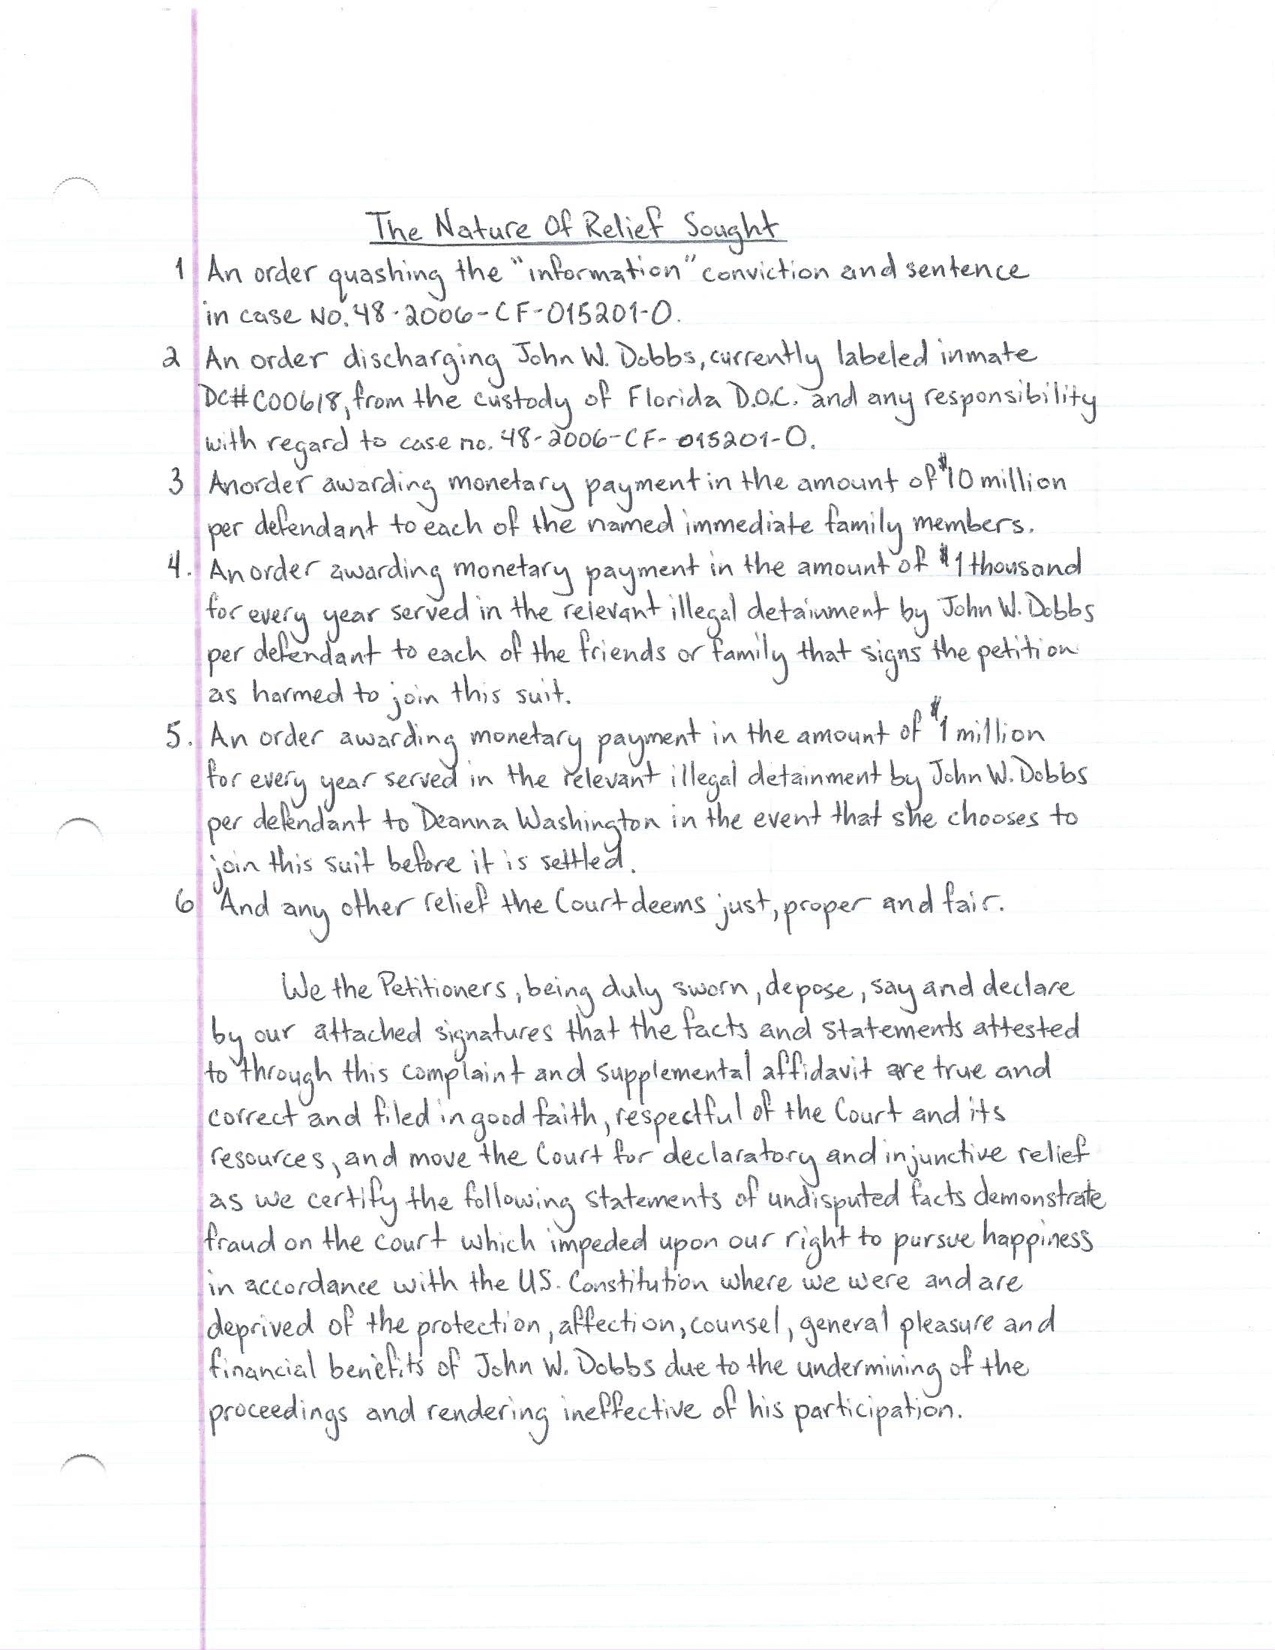 The Nature Of Relief Sought
1 An order quashing the "information" conviction and sentence
in case No. 48-2006-CF-015201-O.
2 An order discharging John W. Dobbs, currently labeled inmate
DC# C00618, from the custody of Florida D.O.C. and any responsibility
with regard to case no. 48-2006-CF-015201-O.
3 An order awarding monetary payment in the amount of $10 million
per defendant to each of the named immediate family members.
4. An order awarding monetary payment in the amount of $1 thousand
for every year served in the relevant illegal detainment by John W. Dobbs
per defendant to each of the friends or family that signs the petition
as harmed to join this suit.
5. An order awarding monetary payment in the amount of $1 million
for every year served in the relevant illegal detainment by John W. Dobbs
per defendant to Deanna Washington in the event that she chooses to
join this suit before it is settled.
6 And any other relief the Court deems just, proper and fair.
We the Petitioners, being duly sworn, depose, say and declare
by our attached signatures that the facts and statements attested
to through this complaint and supplemental affidavit are true and
correct and filed in good faith, respectful of the Court and its
resources, and move the Court for declaratory and injunctive relief
as we certify the following statements of undisputed facts demonstrate
fraud on the court which impeded upon our right to pursue happiness
in accordance with the US. Constitution where we were and are
deprived of the protection, affection, counsel, general pleasure and
financial benefits of John W. Dobbs due to the undermining of the
proceedings and rendering ineffective of his participation.